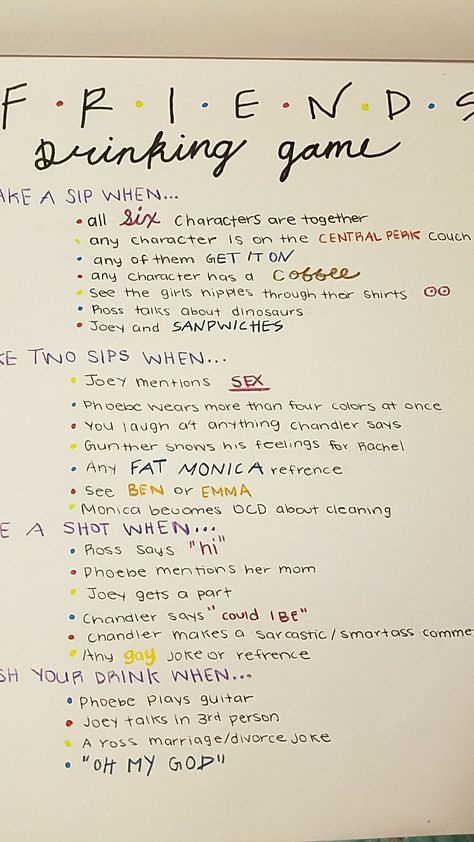 F • R • I • E • N • D • S
Drinking game
AKE A SIP WHEN...
• all six characters are together
• any character is on the CENTRAL PERK couch
• any of them GET IT ON
• any character has a coffee
• See the girls nipples through their shirts
• Ross talks about dinosaurs
• Joey and SANDWICHES
KE TWO SIPS WHEN...
• Joey mentions SEX
• Phoebe wears more than four colors at once
• You laugh at anything Chandler says
• Gunther shows his feelings for Rachel
• Any FAT MONICA refrence
• See BEN or EMMA
• Monica becomes OCD about cleaning
E A SHOT WHEN...
• Ross says "hi"
• Phoebe mentions her mom
• Joey gets a part
• Chandler says "could I BE"
• Chandler makes a sarcastic/smartass comme
• Any gay joke or refrence
SH YOUR DRINK WHEN...
• Phoebe plays guitar
• Joey talks in 3rd person
• A ross marriage/divorce joke
• "OH MY GOD"